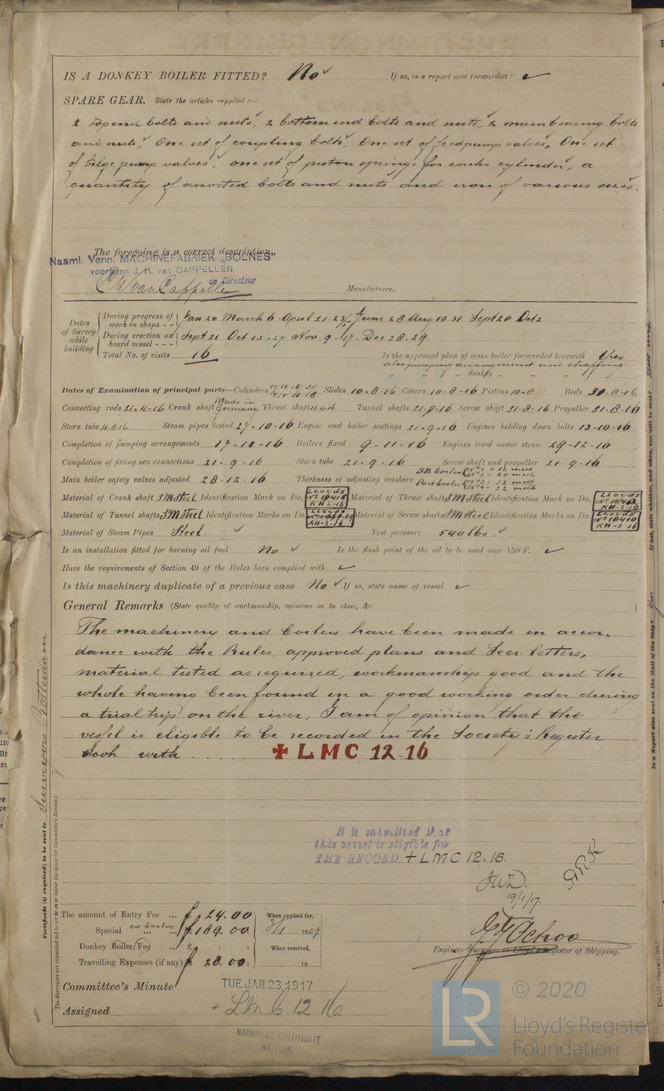 IS A DONKEY BOILER FITTED? No ✓ If so, is a report now forwarded? ✓
SPARE GEAR. State the articles supplied:—
2 top end bolts and nuts, 2 bottom end bolts and nuts, 2 main bearing bolts
and nuts, One set of coupling bolts, One set of feed pump valves, One set
of bilge pump valves, one set of piston springs for each cylinder, a
quantity of assorted bolts and nuts and iron of various sizes.
The foregoing is a correct description
Naaml. Venn. MACHINEFABRIEK „BOLNES"
voorheen J. H. van CAPPELLEN
de Directeur
Manufacturer.
Dates of Survey while building
During progress of work in shops - - Jan 20 March 6 April 21 June 28 Aug 10.31 Sept 20 Oct 2
During erection on board vessel - - - Sept 21 Oct 13-27 Nov 9-17 Dec 28-29
Total No. of visits 16
Is the approved plan of main boiler forwarded herewith Yes
also pumping arrangement and shafting
" " " donkey " " "
Dates of Examination of principal parts—Cylinders Slides 10-8-16 Covers 10-8-16 Pistons 10-8- Rods 30-8-16
Connecting rods 21-4-16 Crank shaft Made in Germany Thrust shaft 21-4-16 Tunnel shafts 21-9-16 Screw shaft 31-8-16 Propeller 31-8-16
Stern tube 4-8-16 Steam pipes tested 27-10-16 Engine and boiler seatings 21-9-16 Engines holding down bolts 13-10-16
Completion of pumping arrangements 17-10-16 Boilers fixed 9-11-16 Engines tried under steam 29-12-16
Completion of fitting sea connections 21-9-16 Stern tube 21-9-16 Screw shaft and propeller 21-9-16
Main boiler safety valves adjusted 28-12-16 Thickness of adjusting washers SB boiler Port boiler
Material of Crank shaft SM Steel Identification Mark on Do. LLOYDS Material of Thrust shaft SM Steel Identification Mark on Do. LLOYDS
Material of Tunnel shafts SM Steel Identification Mark on Do. Material of Screw shafts SM Steel Identification Mark on Do. LLOYDS
Material of Steam Pipes Steel ✓ Test pressure 540 lbs. ✓
Is an installation fitted for burning oil fuel No ✓ Is the flash point of the oil to be used over 150°F. ✓
Have the requirements of Section 49 of the Rules been complied with ✓
Is this machinery duplicate of a previous case No ✓ If so, state name of vessel ✓
General Remarks (State quality of workmanship, opinions as to class, &c.
The machinery and boilers have been made in accor-
dance with the Rules, approved plans and Secr. letters,
material tested as required, workmanship good and the
whole having been found in a good working order during
a trial trip on the river, I am of opinion that the
vessel is eligible to be recorded in the Society's Register
book with ..... + LMC 12-16
It is submitted that
this vessel is eligible for
THE RECORD. + LMC 12.16.
19/1/17.
The amount of Entry Fee ... £ 24.00 When applied for,
Special on boilers £ 189.00
Donkey Boiler Fee ... £ : : When received,
Travelling Expenses (if any) £ 28.00 19
Engineer Surveyor to Lloyd's Register of Shipping.
Committee's Minute TUE. JAN. 23. 1917
Assigned + LMC 12.16
MACHINERY CERTIFICATE
WRITTEN.
Surveyors Rotterdam
Certificate (if required) to be sent to
LR © 2020
Lloyd's Register
Foundation